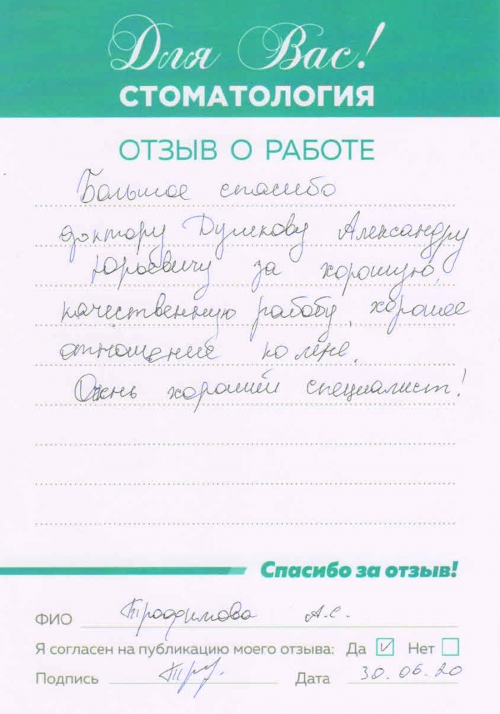 Для Вас!
СТОМАТОЛОГИЯ
ОТЗЫВ О РАБОТЕ
Большое спасибо
доктору Душкову Александру
Юрьевичу за хорошую,
качественную работу, хорошее
отношение ко мне.
Очень хороший специалист!
Спасибо за отзыв!
ФИО Трофимова А.С.
Я согласен на публикацию моего отзыва: Да ☑ Нет ☐
Подпись Дата 30.06.20